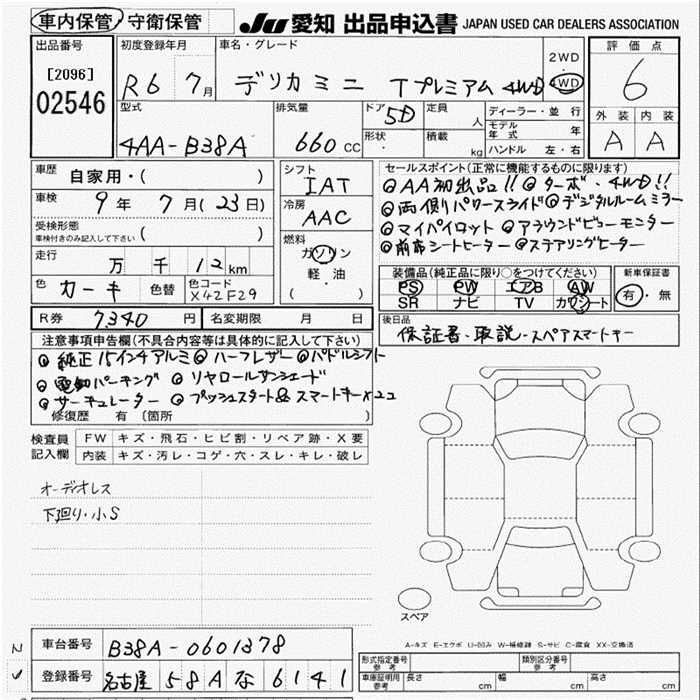 車内保管 / 守衛保管 JU 愛知 出品申込書 JAPAN USED CAR DEALERS ASSOCIATION
出品番号 初度登録年月 車名・グレード 2WD 評価点
[2096] R6 7月 デリカミニ Tプレミアム 4WD 4WD 6
02546 型式 排気量 ドア 5D 定員 人 ディーラー・並行 外装 内装
4AA-B38A 660 CC 形状 ・ 積載 kg モデル年式 年 A A
ハンドル 左・右
車歴 自家用・( ) シフト IAT セールスポイント(正常に機能するものに限ります)
車検 9年 7月(23日) 冷房 AAC ◎AA初出品!! ◎ターボ・4WD!!
◎両側パワースライド ◎デジタルルームミラー
受検形態 車検付きのみ記入して下さい ( ) ◎マイパイロット ◎アラウンドビューモニター
走行 万 千 12 km 燃料 ガソリン ◎前席シートヒーター ◎ステアリングヒーター
軽油 装備品(純正品に限り○をつけてください) 新車保証書
色 カーキ 色替 色コード X42F29 ( ) PS PW エアB AW 有・無
SR ナビ TV カワシート
R券 7340 円 名変期限 月 日 後日品
保証書・取説・スペアスマートキー
注意事項申告欄(不具合内容等は具体的に記入して下さい)
◎純正15インチアルミ ◎ハーフレザー ◎パドルシフト
◎電動パーキング ◎リヤロールサンシェード
◎サーキュレーター ◎プッシュスタート& スマートキー×2コ
修復歴 有 〔箇所 〕
検査員 FW キズ・飛石・ヒビ割・リペア跡・X要
記入欄 内装 キズ・汚レ・コゲ・穴・スレ・キレ・破レ
オーディオレス
下廻り・小S
スペア
A-キズ E-エクボ U-凹み W-補修跡 S-サビ C-腐食 XX-交換済
車台番号 B38A-0601378
型式指定番号 参考 類別区分番号 参考
登録番号 名古屋 58A な 6141
車庫証明用 参考 長さ cm 幅 cm 高さ cm